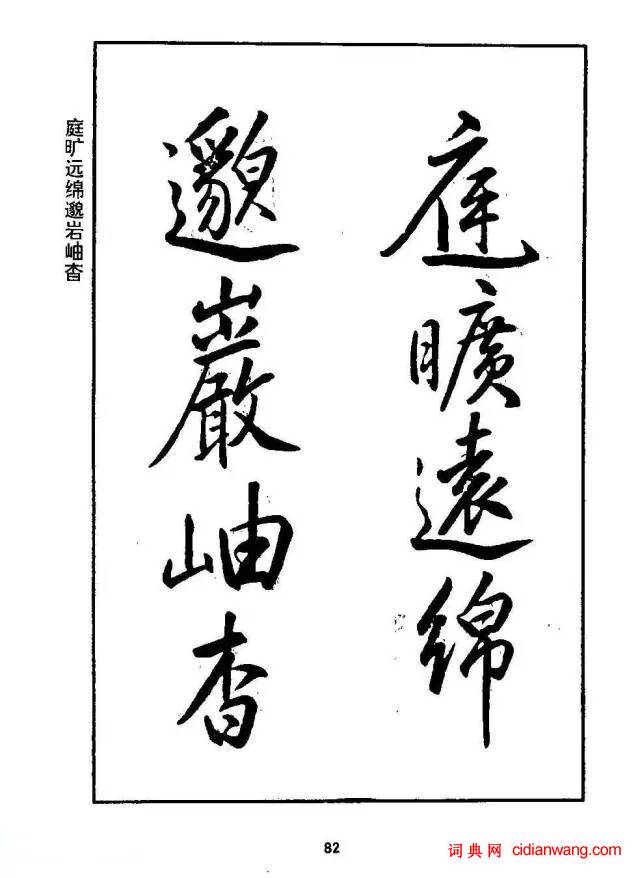 庭曠遠綿
邈巖岫杳
庭旷远绵邈岩岫杳
82
词典网 cidianwang.com